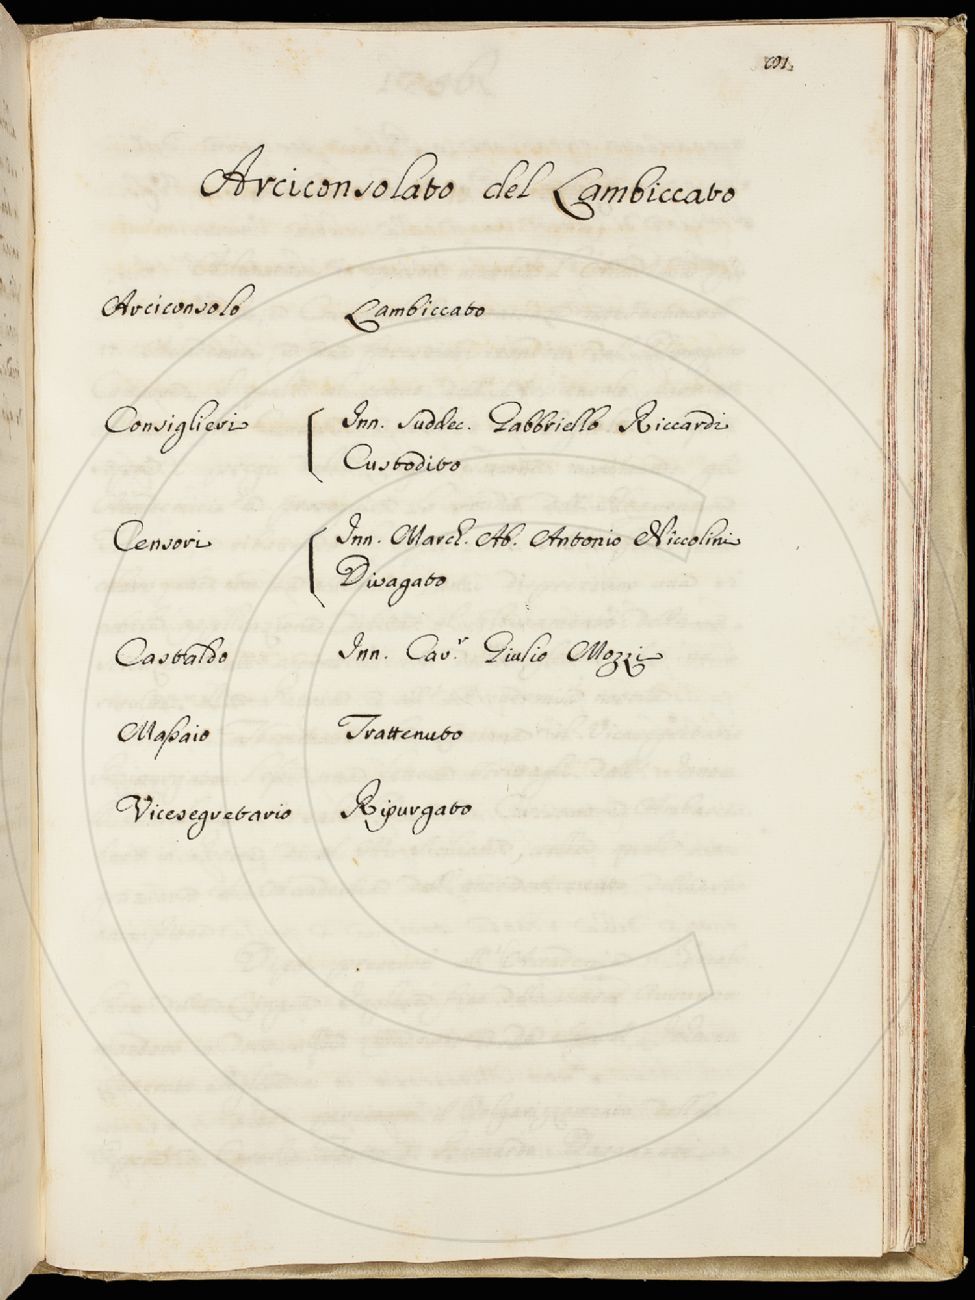 Arciconsolato del Lambiccato
Arciconsolo Lambiccato
Consiglieri Inn. Suddec. Gabbriello Riccardi
Custodito
Censori Inn. March. Ab. Antonio Niccolini
Divagato
Castaldo Inn. Cav.r Giulio Mozzi
Massaio Trattenuto
Vicesegretario Ripurgato